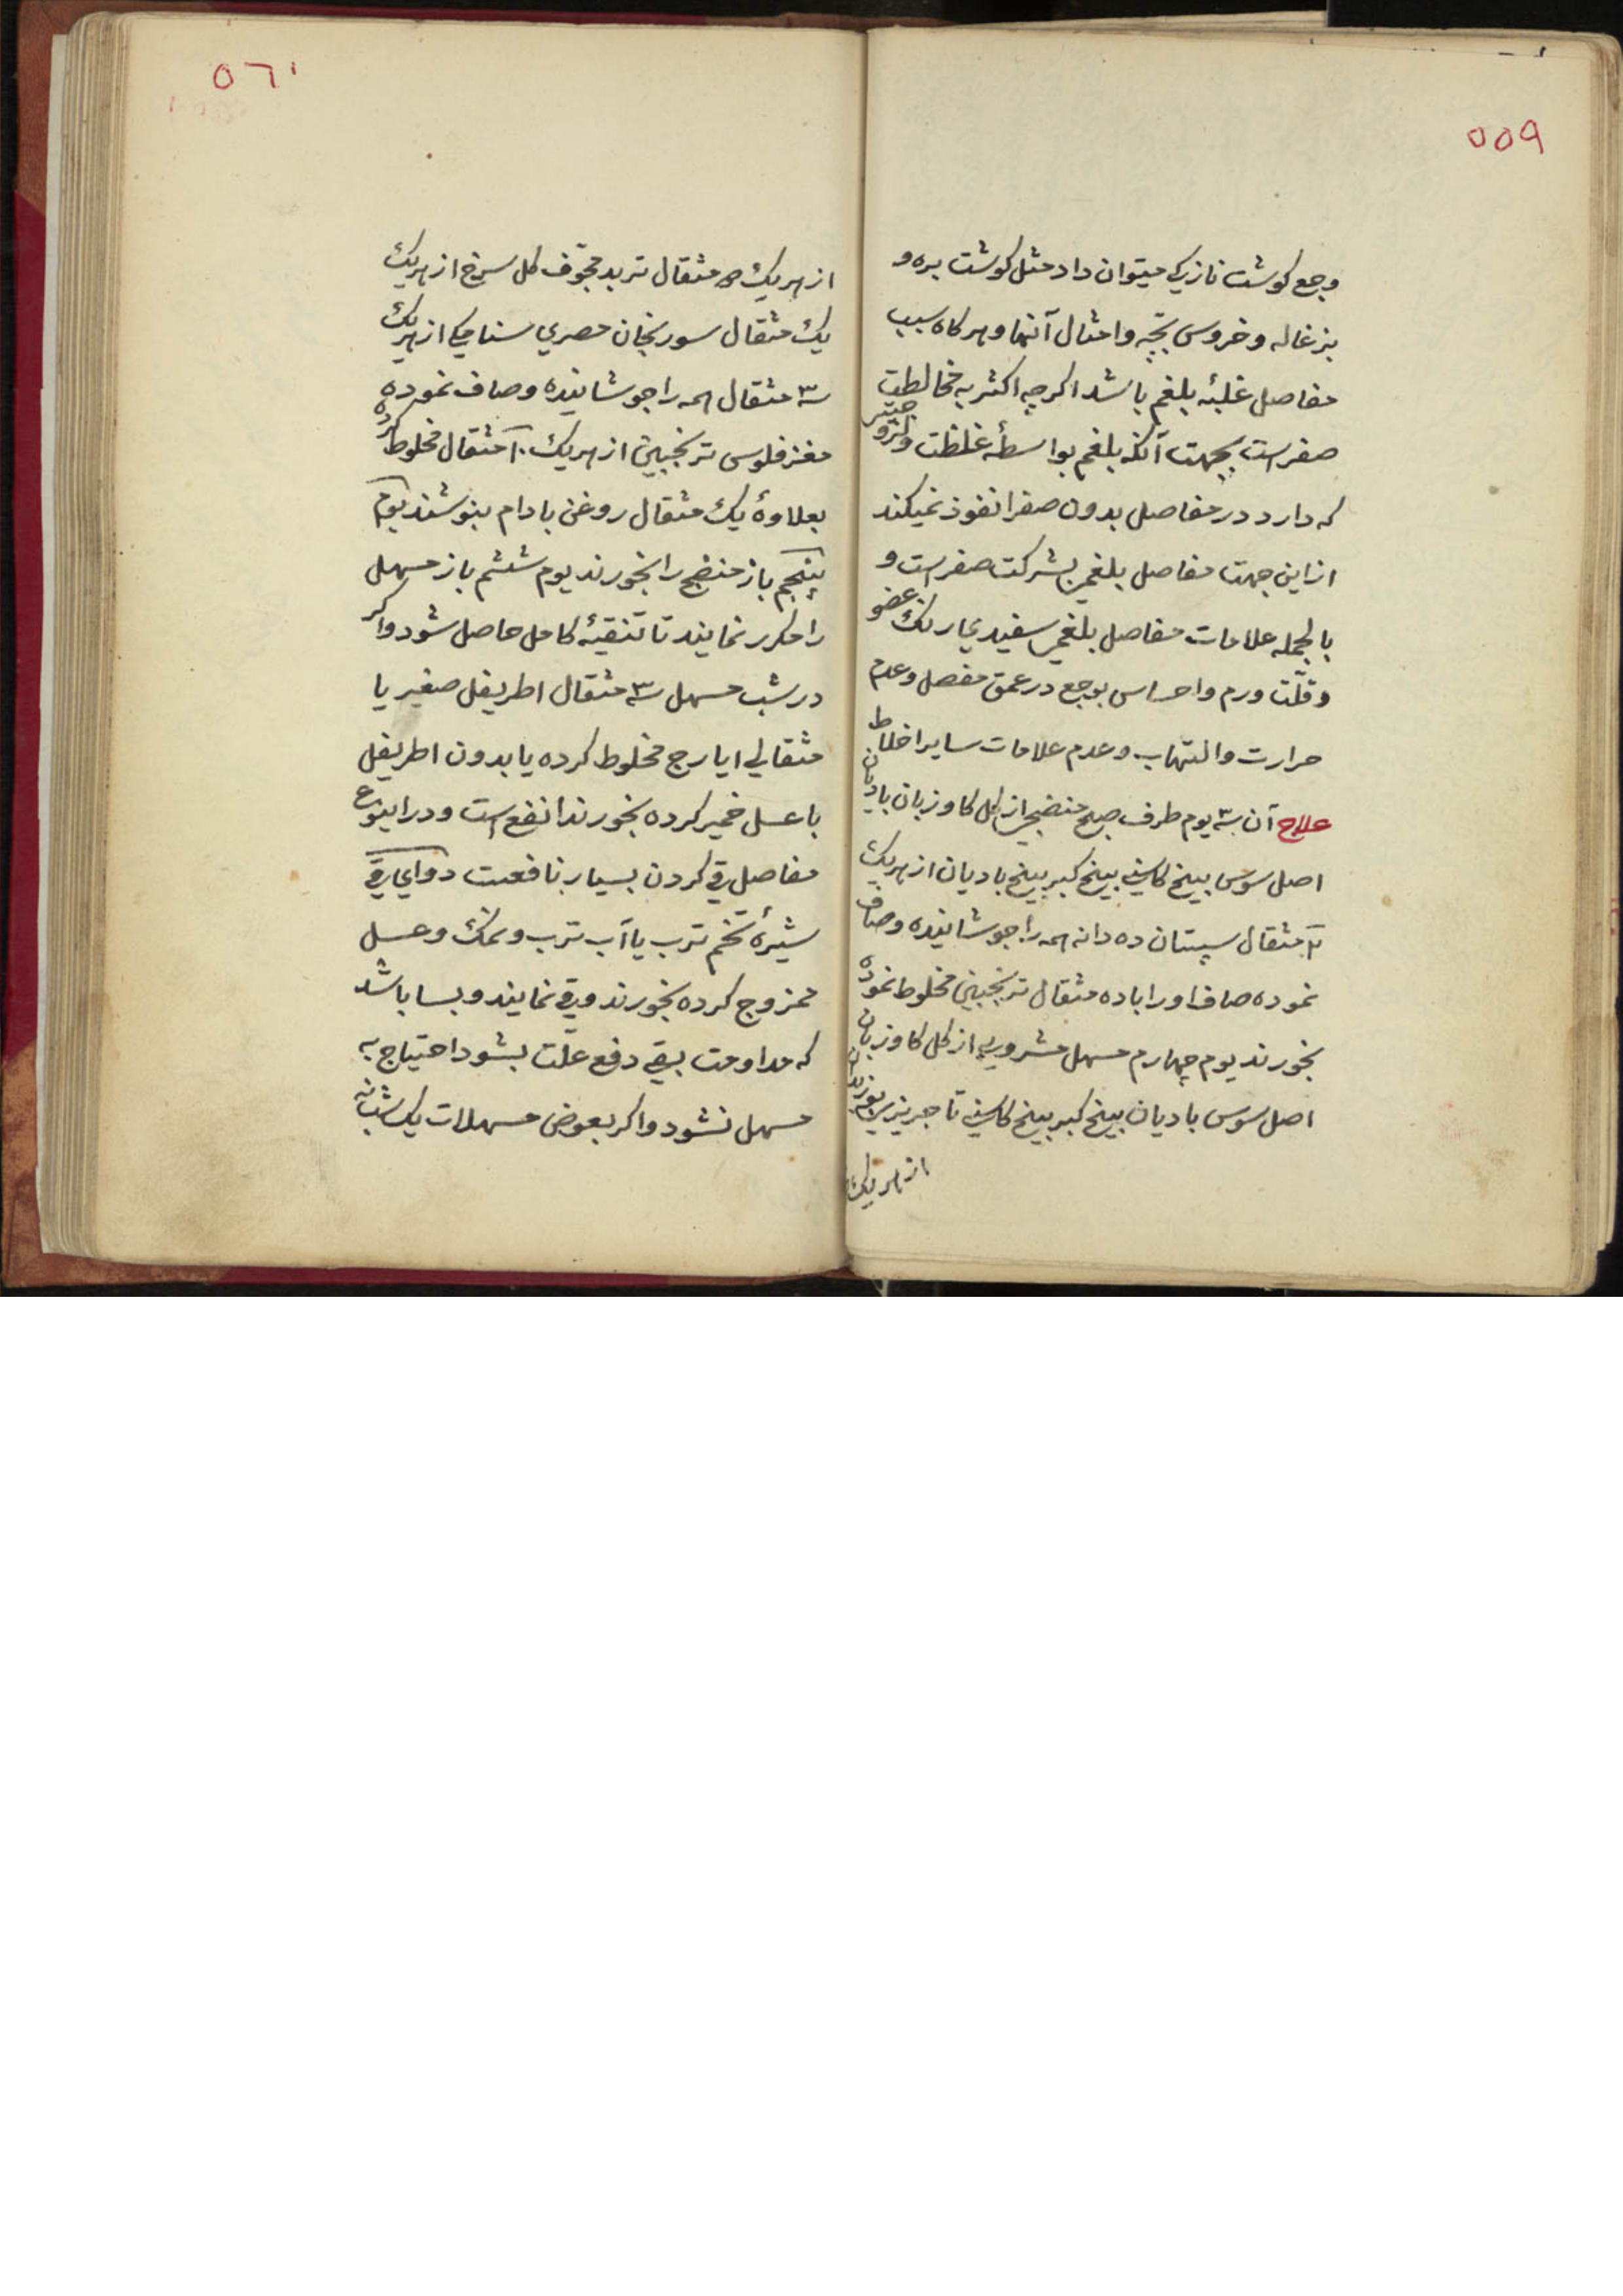 ٥٥٩
وجع کوشت نازک میتوان داد مثل کوشت بره و
بزغاله و خروس بچّه و امثال آنها و هرکاه سبب
مفاصل غلبهٔ بلغم باشد اکرچه اکثر به مخالطت
صفراست بجهت آنکه بلغم بواسطهٔ غلظت و لزوجتی
که دارد در مفاصل بدون صفرا نفوذ نمیکند
از این جهت مفاصل بلغمی بشرکت صفراست و
بالجمله علامات مفاصل بلغمی سفیدی رنک عضو
و قلّت ورم و احساس بوجع در عمق مفصل و عدم
حرارت و التهاب و عدم علامات سایر اخلاط
علاج آن سه یوم طرف صبح منضجی از کل کاوزبان بادیان
اصل سوس بیخ کاسنی بیخ کبر بیخ بادیان از هریک
۲ مثقال سپستان ده دانه همه را جوشانیده و صاف
نموده صاف او را با ده مثقال ترنجبین مخلوط نموده
بخورند یوم چهارم مسهل مشروبی از کل کاوزبان
اصل سوس بادیان بیخ کبر بیخ کاسنی تاجریزی
از هریک
٥٦٠
از هریک ۵ مثقال تربد مجوّف کل سرخ از هریک
یک مثقال سورنجان مصری سنا مکی از هریک
سه مثقال همه را جوشانیده و صاف نموده
مغز فلوس ترنجبین از هریک ۱۰ مثقال مخلوط کرده
بعلاوهٔ یک مثقال روغن بادام بنوشند یوم
پنجم باز منضج را بخورند یوم ششم باز مسهل
را مکرر نمایند تا تنقیهٔ کامل حاصل شود و اکر
در شب مسهل سه مثقال اطریفل صغیر با
مثقالی ایارج مخلوط کرده یا بدون اطریفل
با عسل خمیر کرده بخورند انفع است و در اینوع
مفاصل قی کردن بسیار نافعست دوای قی
شیرهٔ تخم ترب یا آب ترب و نمک و عسل
ممزوج کرده بخورند و قی نمایند و بسا باشد
که مداومت بقی دفع علّت بشود احتیاج به
مسهل نشود و اکر بعوض مسهلات یک شب